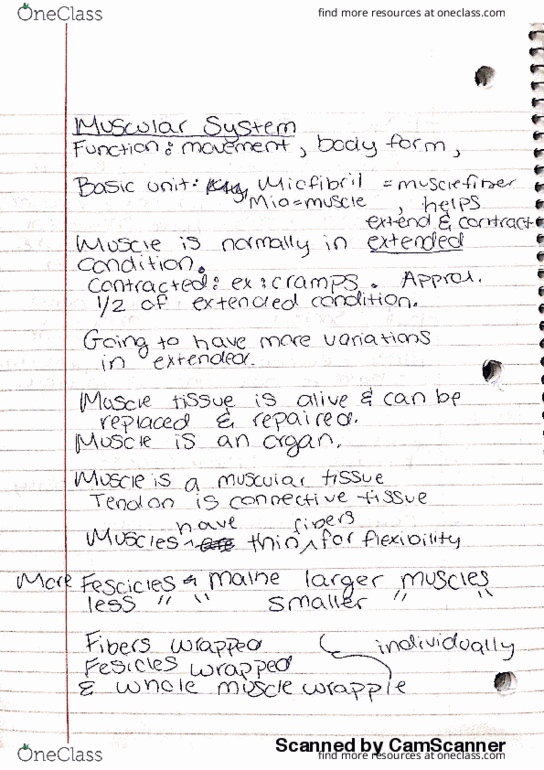 OneClass
find more resources at oneclass.com
Muscular System
Function: movement, body form,
Basic unit: Miofibril = muscle fiber
Mio=muscle , helps
extend & contract
Muscle is normally in extended
condition.
contracted: ex: cramps. Approx.
1/2 of extended condition.
Going to have more variations
in extended.
Muscle tissue is alive & can be
replaced & repaired.
Muscle is an organ.
Muscle is a muscular tissue
Tendon is connective tissue
have fibers
Muscles thin for flexibility
More Fescicles make larger muscles
less " " smaller " "
Fibers wrapped individually
Fesicles wrapped
& whole muscle wrapple
Scanned by CamScanner
OneClass
find more resources at oneclass.com